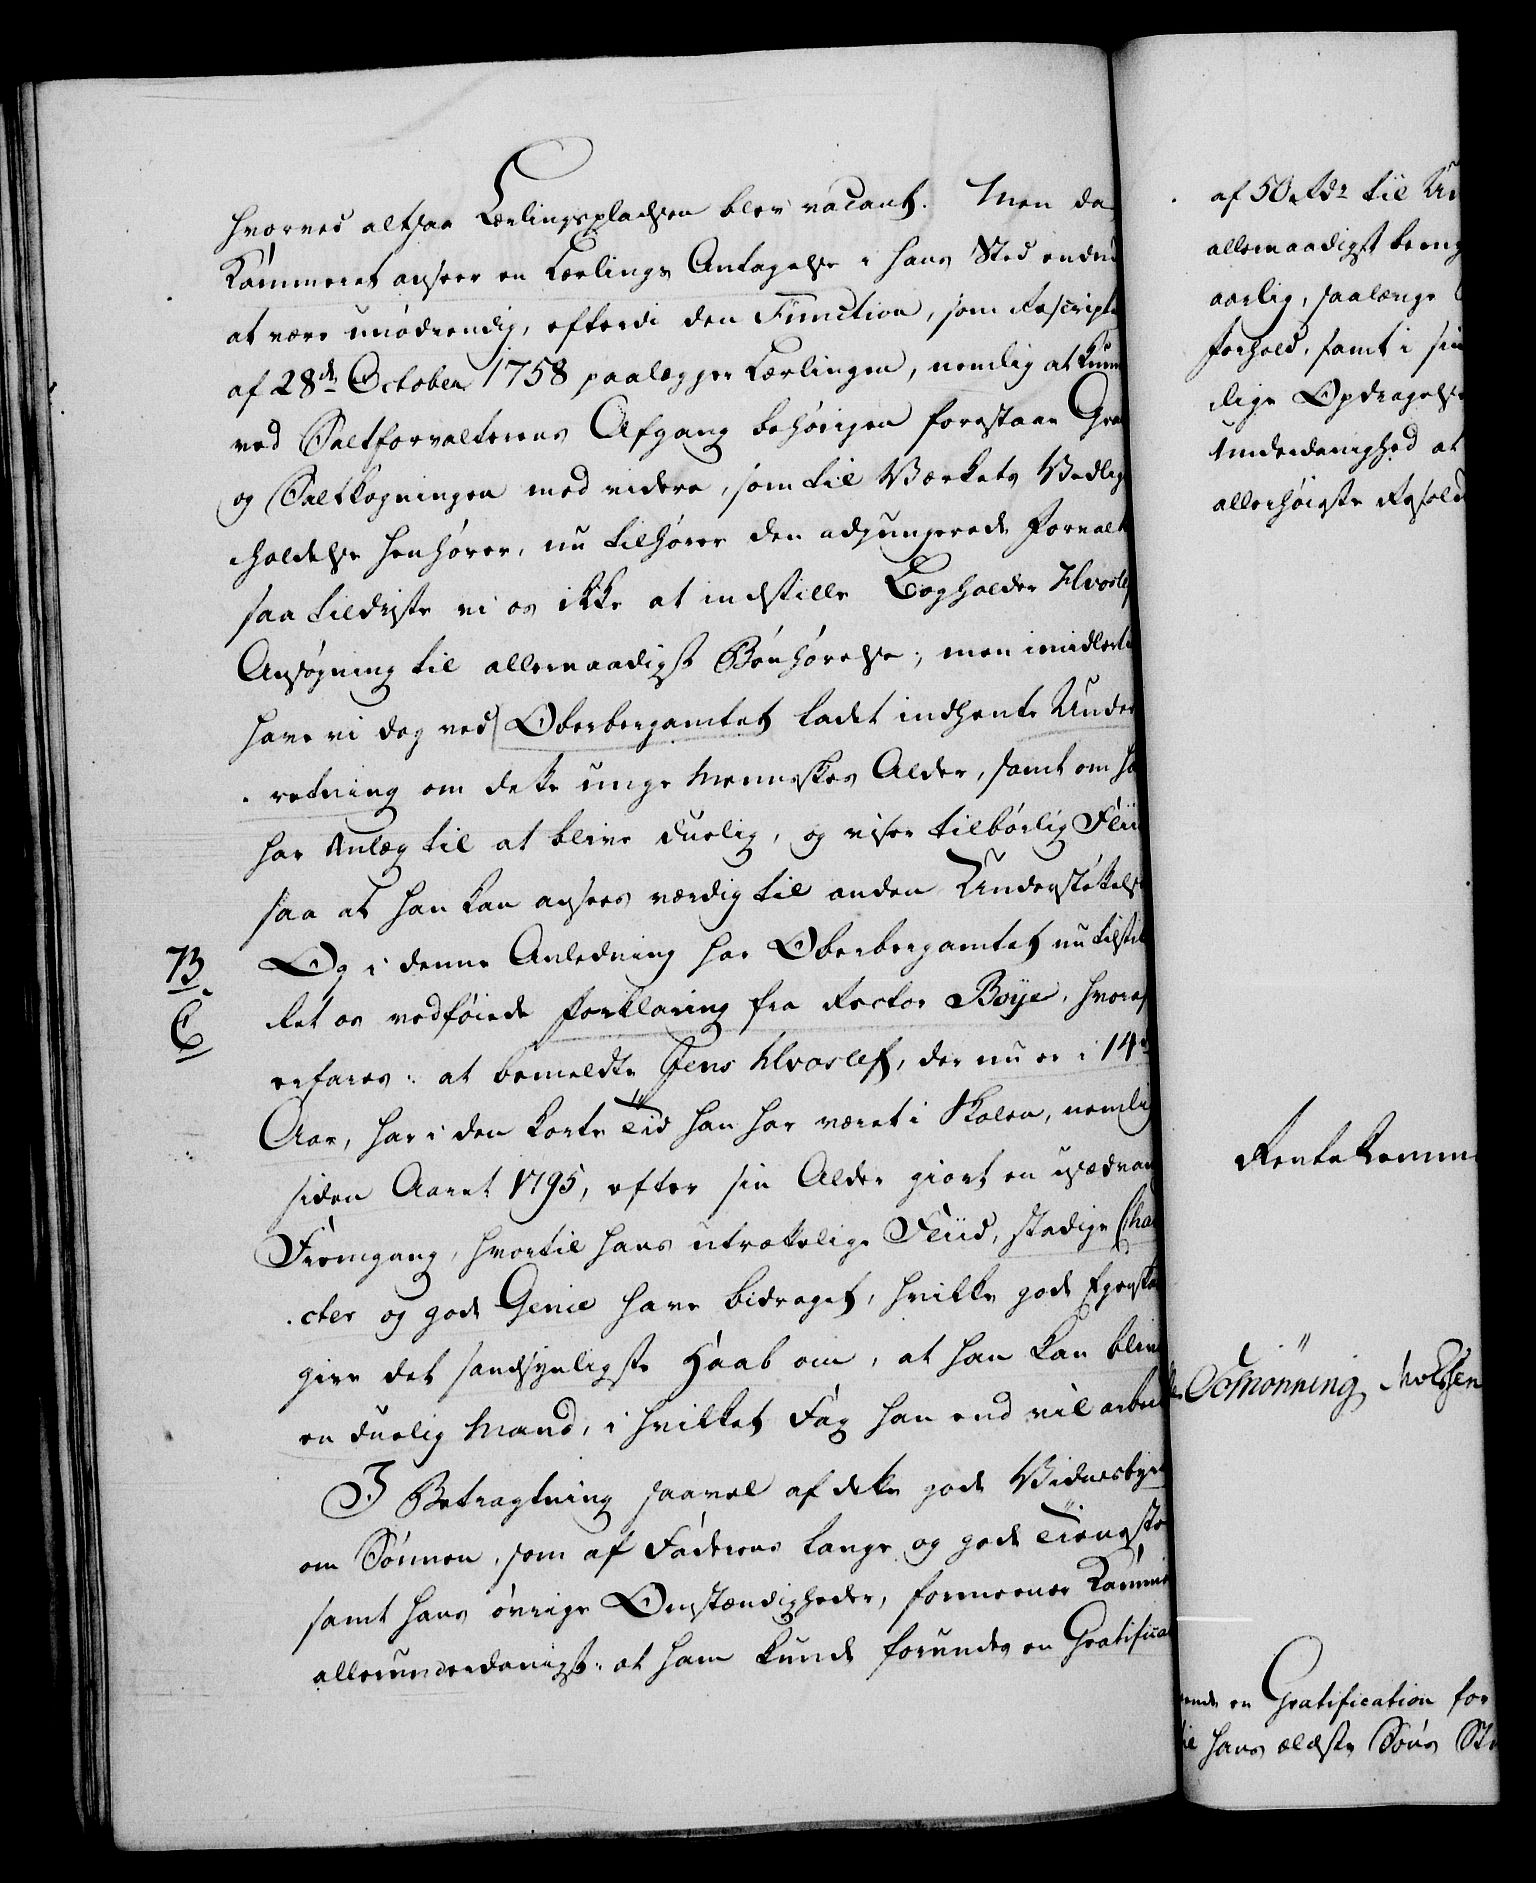 hvorved altsaa Lærlingspladsen blev vacant. Men da
Kammeret anseer en Lærlings Antagelse i hans Sted endnu
at være unødvendig, efterdi den Function, som Rescript
af 28de October 1758 paalægger Lærlingen, nemlig at kun
ved Saltforvalterens Afgang behørigen forestaae Gra
og Saltkogningen med videre, som til Værkets Vedlig
holdelse henhører, nu tilhører den adjungerede Forvalt
saa tildriste vi os ikke at indstille Bogholder Hvoslef
Ansøgning til allernaadigst Bønhørelse; men imidlerti
have vi dog ved Oberbergamtet ladet indhente Under
retning om dette unge Menneskes Alder, samt om ha
har Anlæg til at blive duelig, og viser tilbørlig Flii
saa at han kan ansees værdig til anden Understøttelse
73.
Og i denne Anledning har Oberbergamtet nu tilstil
C
let os vedføiede Forklaring fra Rector Boye, hvoraf
erfares: at bemeldte Jens Hvoslef, der nu er i 14de
Aar, har i den korte Tiid han har været i Skolen, nemlig
siden Aaret 1795, efter sin Alder giort en usædvan
Fremgang, hvortil hans utrættelige Fliid, stadige Cha
cter og gode Genie have bidraget, hvilke gode Egenska
give det sandsynligste Haab om, at han kan blive
en duelig Mand, i hvilket Fag han end vil arbei
I Betragtning saavel af dette gode Vidnesbyrd
om Sønnen, som af Faderens lange og gode Tieneste
samt hans øvrige Omstændigheder, formeener Kamme
allerunderdanigst: at ham kunde forundes en Gratificat
af 50 Rdr til Un
allernaadigst beng
aarlig, saalænge
forhold, samt i sin
dige Opdragelse
Underdanighed at
allerhøieste Resol
RenteKamm
Schønning Moessen
en Gratification for
hans ældste Søns St